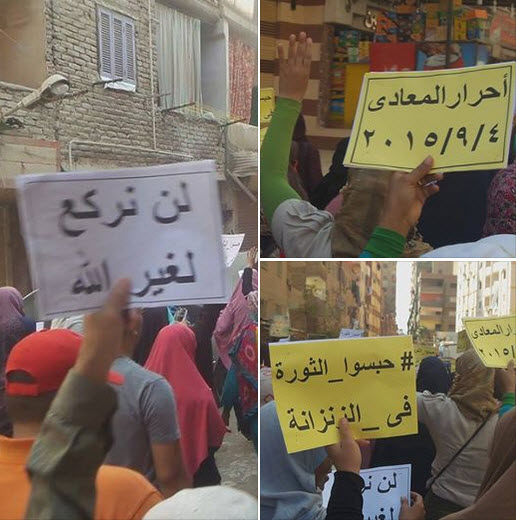 لن نركع
لغير الله
أحرار المعادى
٢٠١٥/٩/٤
#حبسوا_الثورة
فى_الزنزانة
المعادى
٢٠١٥
لن نركع
لغير